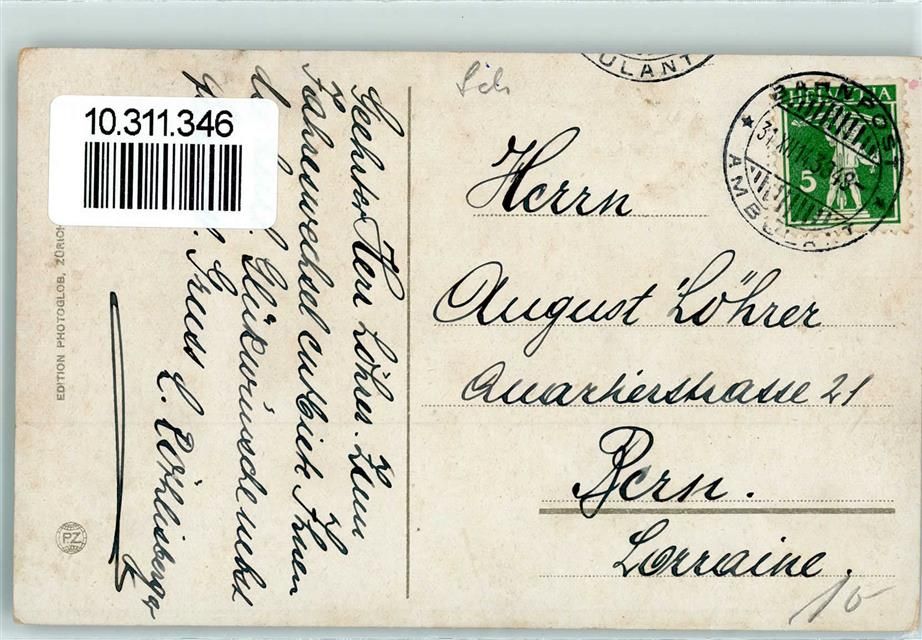 10.311.346
Geehrter Herr Löhrer. Zum
Jahreswechsel entbiete Ihnen
Glückwünsche nebst
Gruss E. Röthlisberger
EDITION PHOTOGLOB, ZÜRICH
PZ
ULANT
HELVETIA
5
BAHNPOST
AMBULANT
Herrn
August Löhrer
Quartierstrasse 21
Bern.
Lorraine.
10-